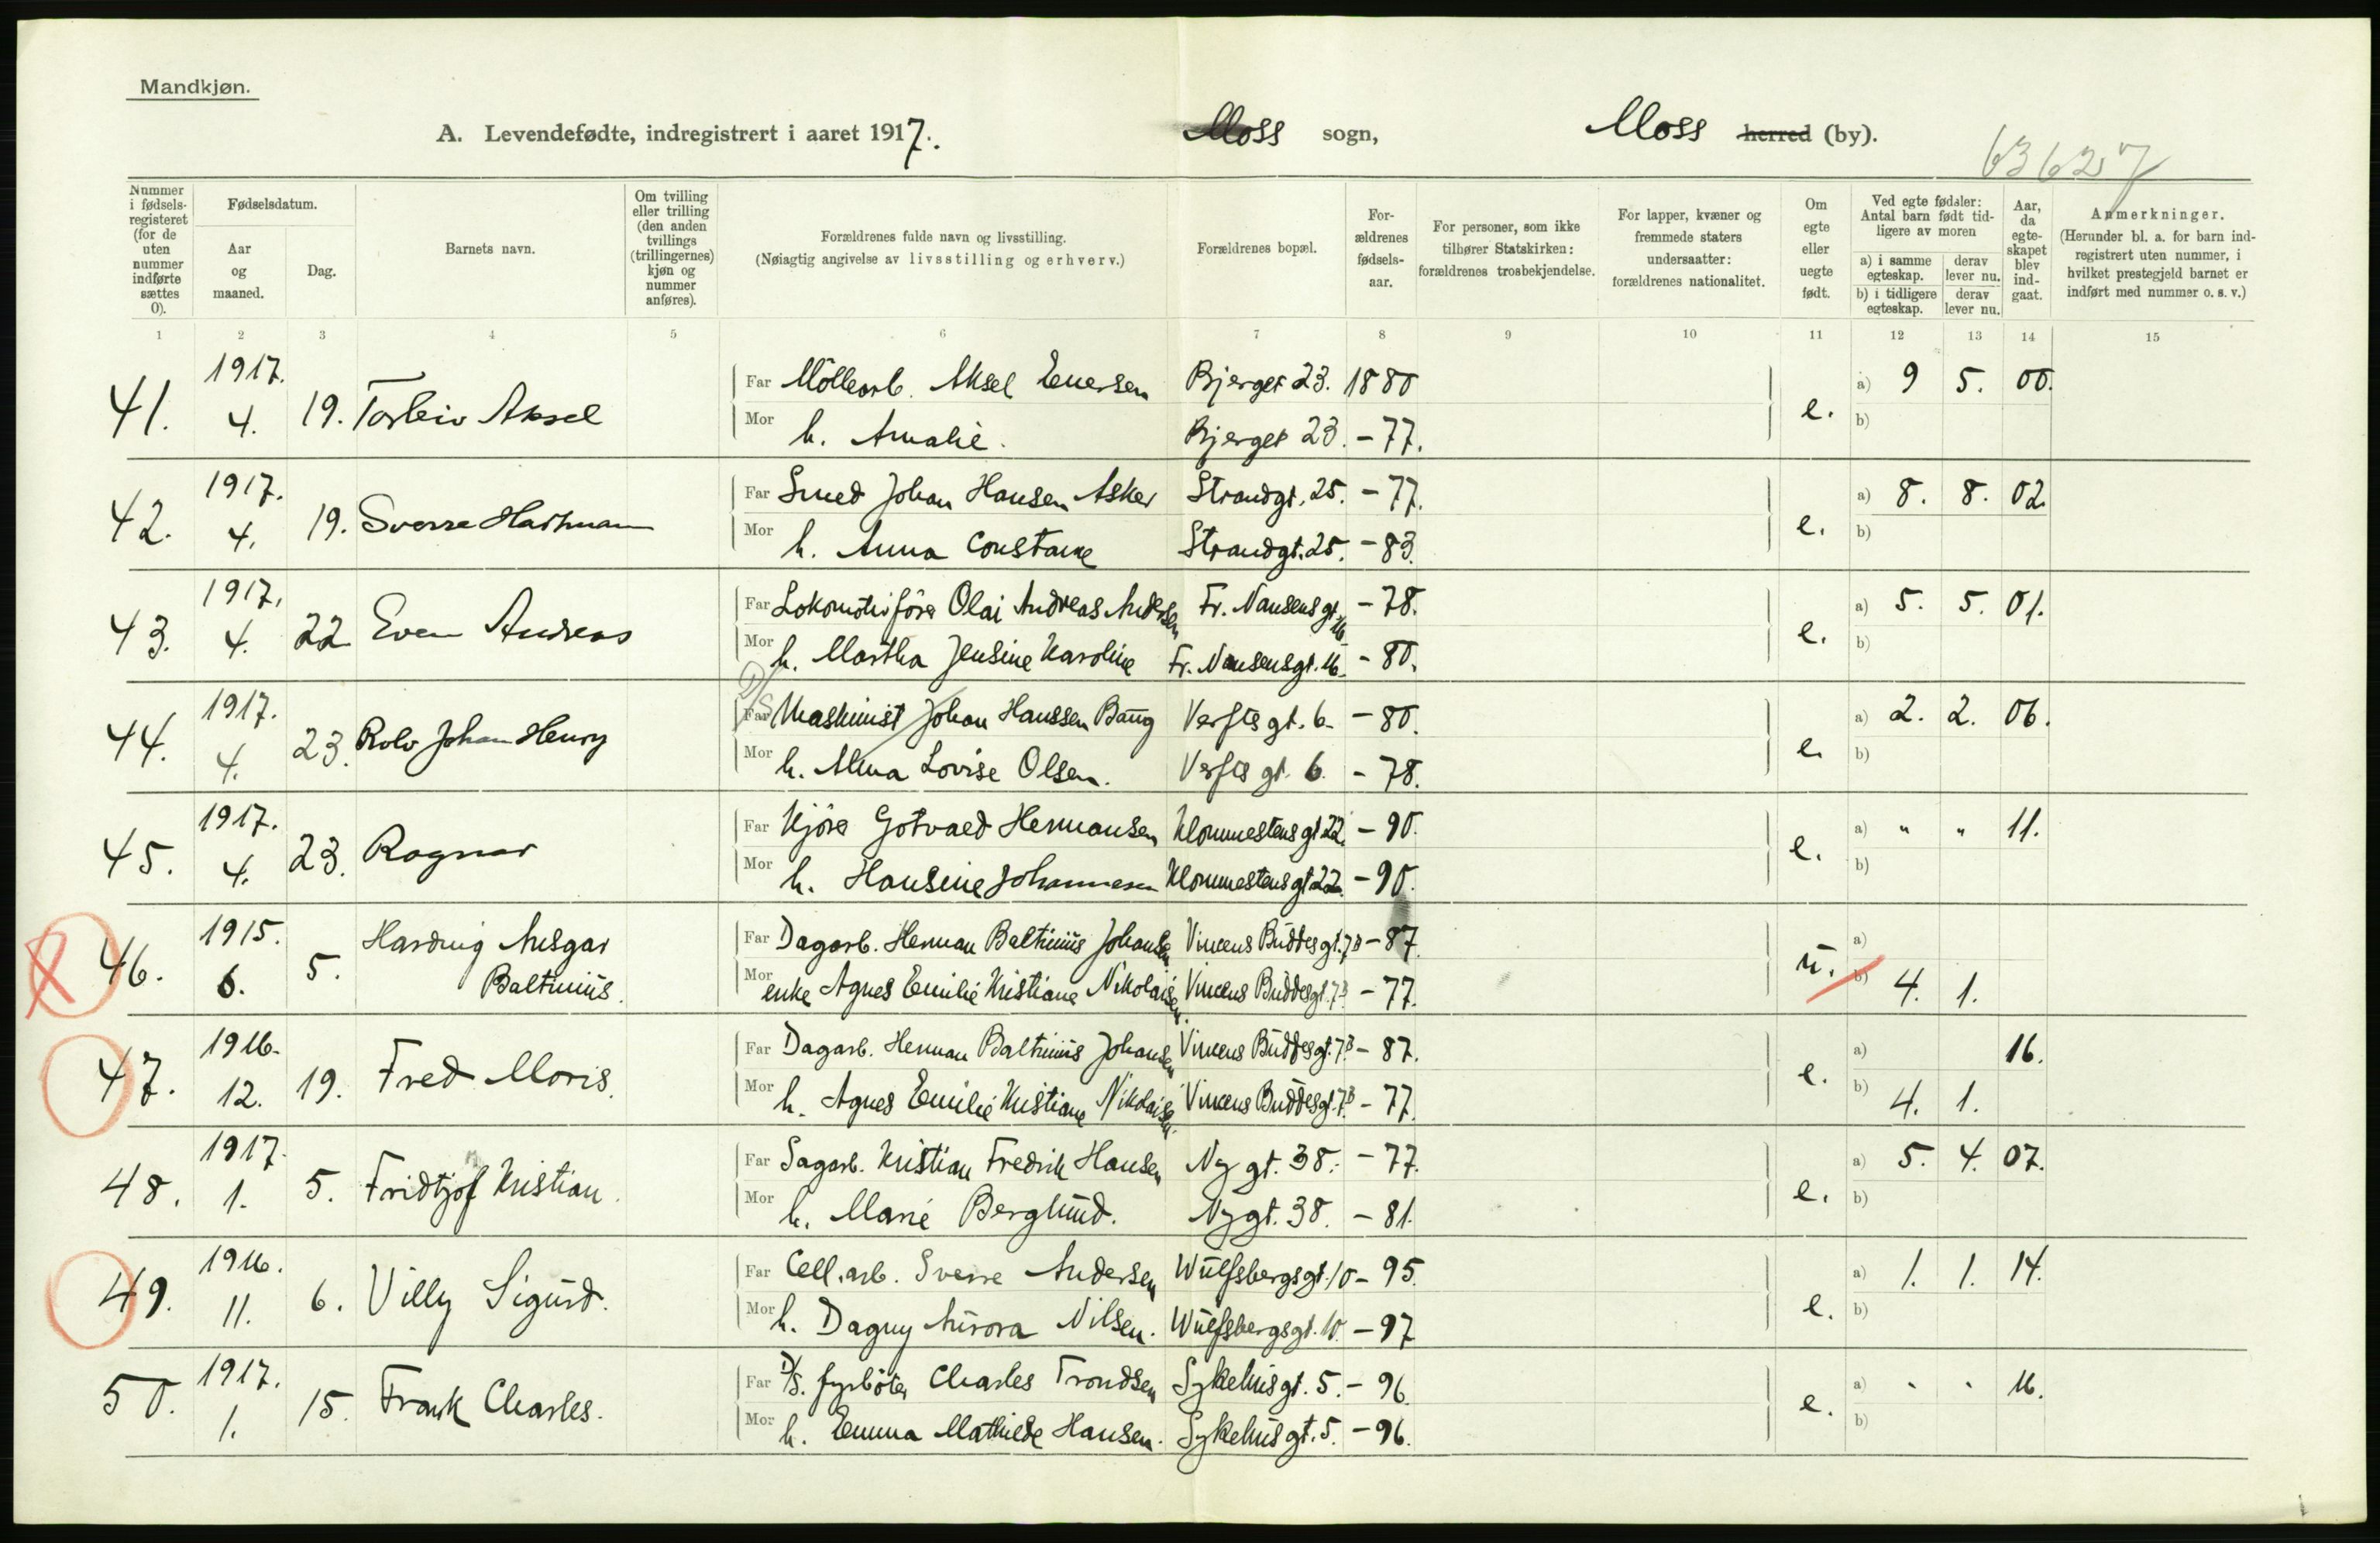 Mandkjøn.
A. Levendefødte, indregistrert i aaret 1917. Moss sogn, Moss herred (by).
63627
Nummer i fødselsregisteret (for de uten nummer indførte sættes 0).
Fødselsdatum.
Aar og maaned.
Dag.
Barnets navn.
Om tvilling eller trilling (den anden tvillings (trillingernes) kjøn og nummer anføres).
Forældrenes fulde navn og livsstilling.
(Nøiagtig angivelse av livsstilling og erhverv.)
Forældrenes bopæl.
Forældrenes fødselsaar.
For personer, som ikke tilhører Statskirken: forældrenes trosbekjendelse.
For lapper, kvæner og fremmede staters undersaatter: forældrenes nationalitet.
Om egte eller uegte født.
Ved egte fødsler: Antal barn født tidligere av moren
a) i samme egteskap. derav lever nu.
b) i tidligere egteskap. derav lever nu.
Aar, da egteskapet blev indgaat.
Anmerkninger.
(Herunder bl. a. for barn indregistrert uten nummer, i hvilket prestegjeld barnet er indført med nummer o. s. v.)
1 2 3 4 5 6 7 8 9 10 11 12 13 14 15
41. 1917. 4. 19. Torleiv Aksel
Far Möllearb. Aksel Eversen Bjerget 23. 1880 e. a) 9 5. 00.
Mor h. Amalie. Bjerget 23. - 77. b)
42. 1917. 4. 19. Sverre Hartman
Far Smed Johan Hansen Asker Strandgt. 25. - 77. e. a) 8. 8. 02.
Mor h. Anna Constance Strandgt. 25. - 83. b)
43. 1917. 4. 22 Even Andreas
Far Lokomotivförer Olai Andreas Andersen Fr. Nansensgt. 16 - 78. e. a) 5. 5. 01.
Mor h. Martha Jensine Karoline Fr. Nansensgt. 16. - 80. b)
44. 1917. 4. 23. Rolv Johan Henry
D/S Far Maskinist Johan Hanssen Baug Verfts gt. 6. - 80. e. a) 2. 2. 06.
Mor h. Alma Lovise Olsen. Verfts gt. 6. - 78. b)
45. 1917. 4. 23. Ragnar
Far Kjörer Gotvald Hermansen Klommestensgt 22. - 90. e. a) " " 11.
Mor h. Hansine Johannesen Klommestensgt 22. - 90. b)
46. 1915. 6. 5. Hardvig Ansgar Baltinius.
Far Dagarb. Herman Baltinius Johansen Vincens Buddesgt. 7B - 87. u. a)
Mor enke Agnes Emilie Kristiane Nikolaisen. Vincens Buddesgt. 7B - 77. b) 4. 1.
47. 1916. 12. 19. Fred Moris.
Far Dagarb. Herman Baltinius Johansen Vincens Buddesgt. 7B - 87. e. a) 16.
Mor h. Agnes Emilie Kristiane Nikolaisen. Vincens Buddesgt. 7B - 77. b) 4. 1.
48. 1917. 1. 5. Fridtjof Kristian.
Far Sagarb. Kristian Fredrik Hansen Ny gt. 38. - 77. e. a) 5. 4. 07.
Mor h. Marie Berglund. Ny gt. 38. - 81. b)
49. 1916. 11. 6. Villy Sigurd.
Far Cell. arb. Sverre Andersen Wulfsbergsgt. 10 - 95. e. a) 1. 1. 14.
Mor h. Dagny Aurora Nilsen. Wulfsbergsgt. 10. - 97 b)
50. 1917. 1. 15. Frank Charles.
Far D/S. fyrböter Charles Trondsen Sykehusgt. 5. - 96. e. a) " " 16.
Mor h. Emma Mathilde Hansen. Sykehusgt. 5. - 96. b)